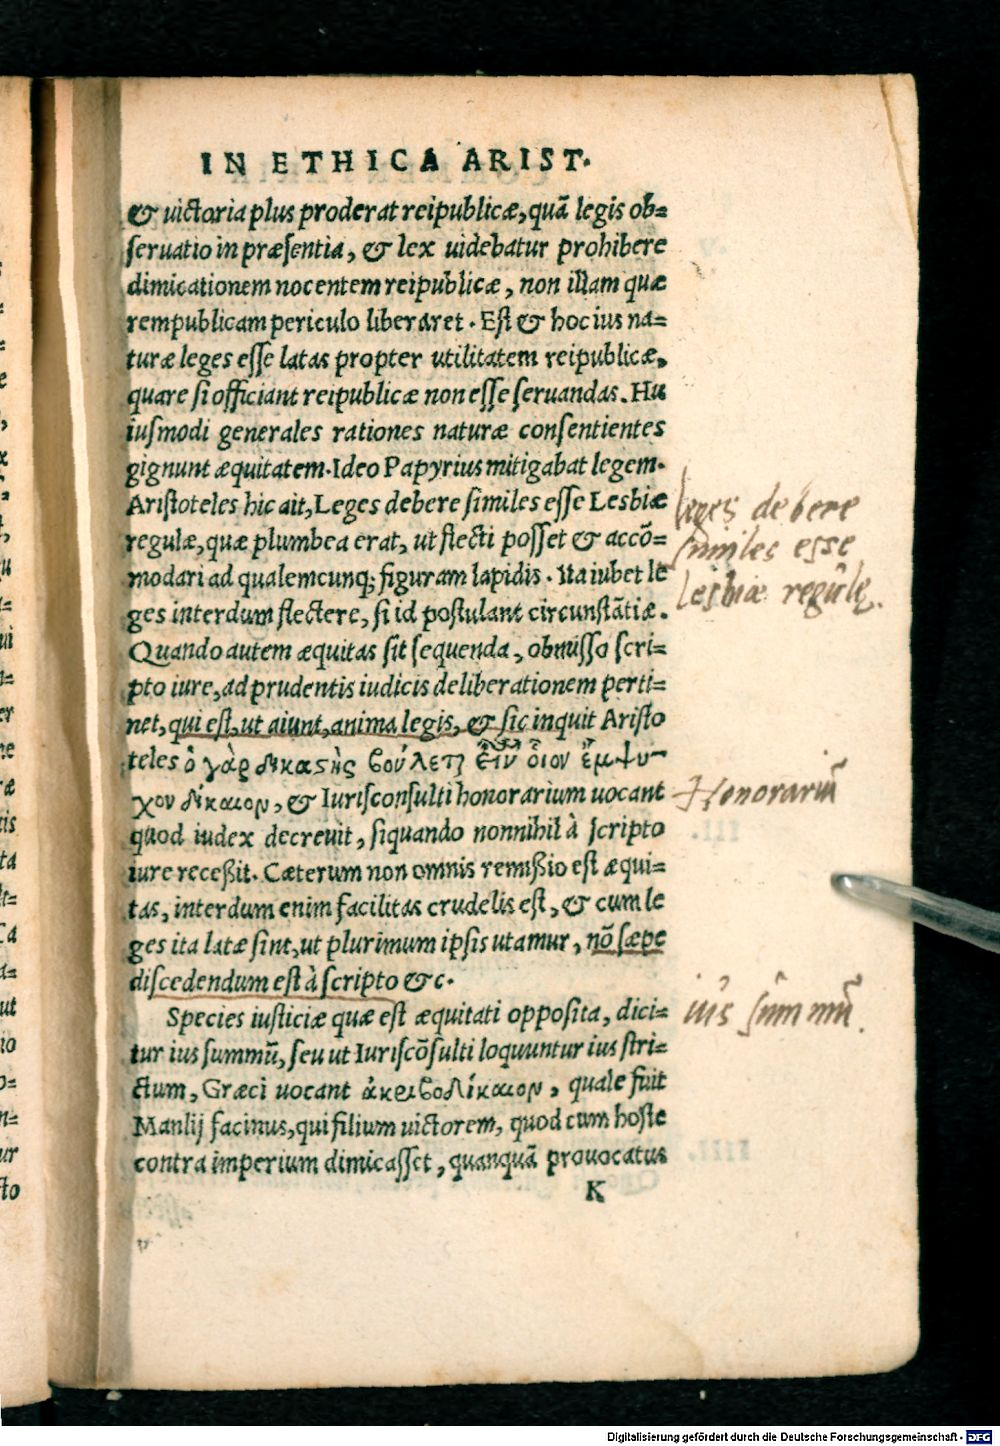 IN ETHICA ARIST.
& uictoria plus proderat reipublicæ, quã legis ob=
seruatio in præsentia, & lex uidebatur prohibere
dimicationem nocentem reipublicæ, non illam quæ
rempublicam periculo liberaret. Est & hoc ius na=
turæ leges esse latas propter utilitatem reipublicæ,
quare si officiant reipublicæ non esse seruandas. Hu
iusmodi generales rationes naturæ consentientes
gignunt æquitatem. Ideo Papyrius mitigabat legem.
Aristoteles hic ait, Leges debere similes esse Lesbiæ
regulæ, quæ plumbea erat, ut flecti posset & accõ=
modari ad qualemcunq; figuram lapidis. Ita iubet le
ges interdum flectere, si id postulant circunstãtiæ.
Quando autem æquitas sit sequenda, obmisso scri=
pto iure, ad prudentis iudicis deliberationem perti=
net, qui est, ut aiunt, anima legis, & sic inquit Aristo
teles ὁ γὰρ δικαστὴς βούλεται εἶναι οἷον ἔμψυ-
χον δίκαιον, & Iurisconsulti honorarium uocant
quod iudex decreuit, siquando nonnihil à scripto
iure receßit. Cæterum non omnis remißio est æqui=
tas, interdum enim facilitas crudelis est, & cum le
ges ita latæ sint, ut plurimum ipsis utamur, nõ sæpe
discedendum est à scripto &c.
Species iusticiæ quæ est æquitati opposita, dici=
tur ius summũ, seu ut Iuriscõsulti loquuntur ius stri=
ctum, Græci uocant ἀκριβοδίκαιον, quale fuit
Manlij facinus, qui filium uictorem, quod cum hoste
contra imperium dimicasset, quanquã prouocatus
K
leges debere
similes esse
lesbiæ regulę.
Honorariũ
ius summũ.
Digitalisierung gefördert durch die Deutsche Forschungsgemeinschaft - DFG